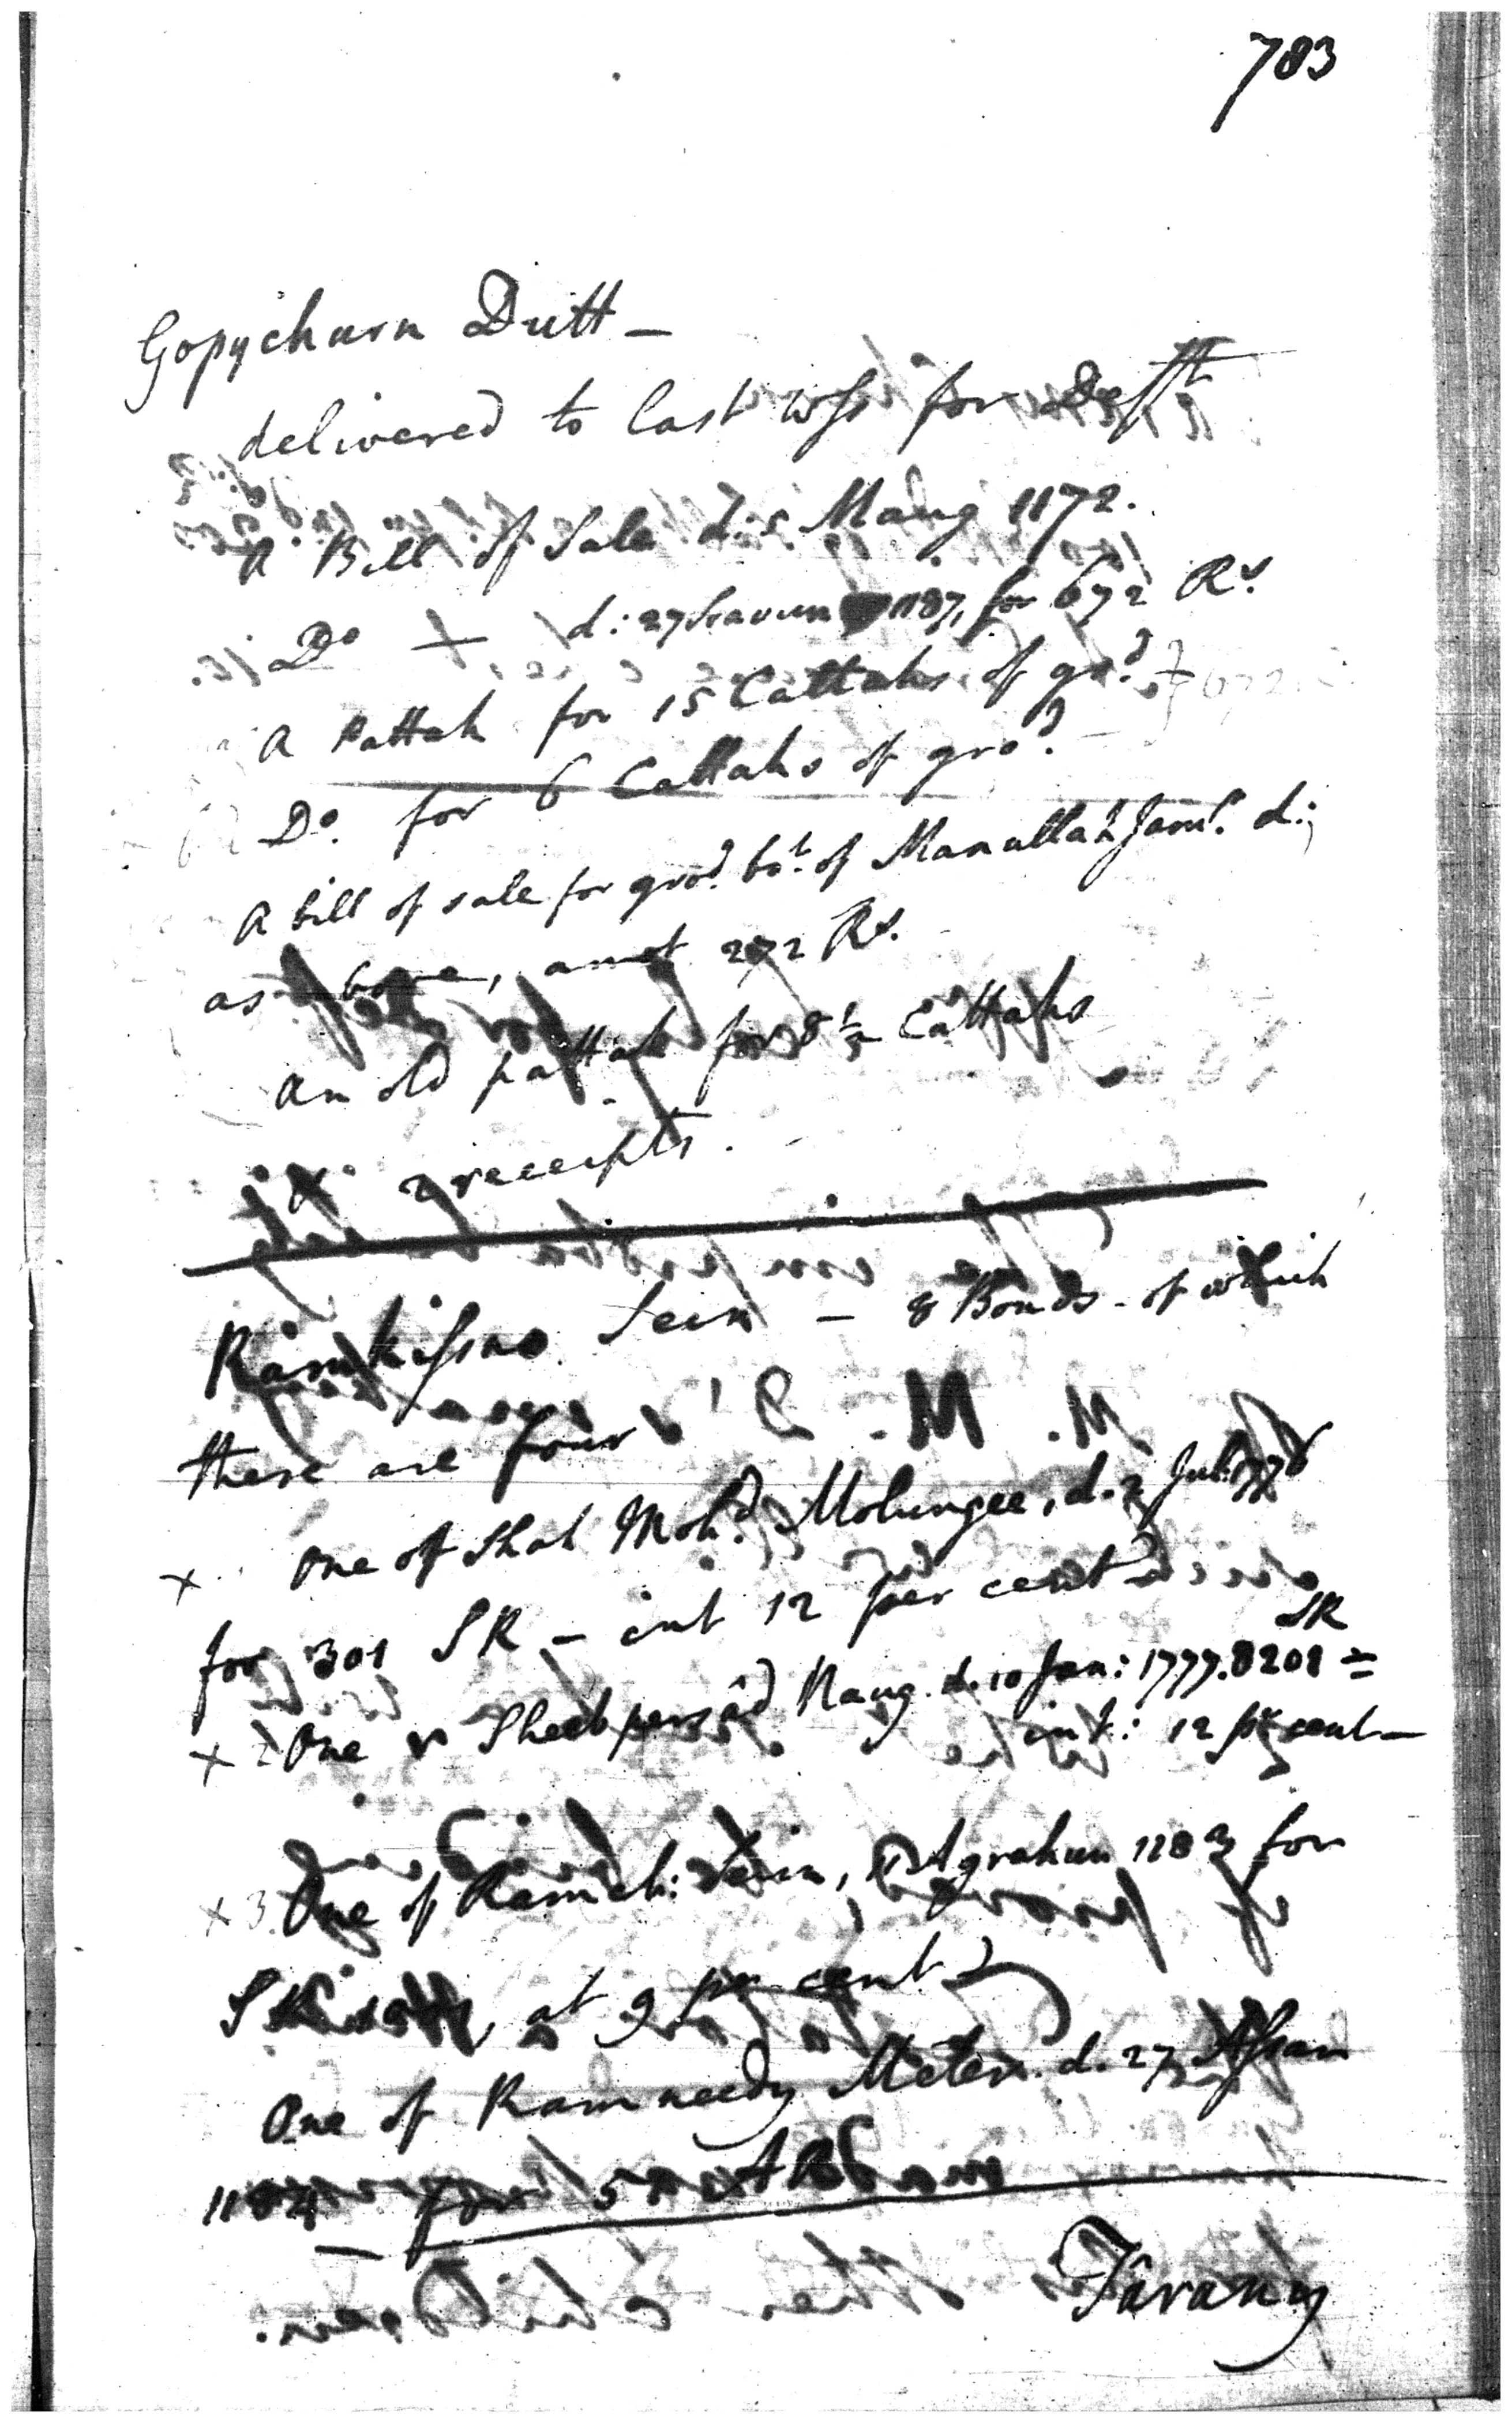 783
Gopychurn Dutt —
delivered to last wss for Defft
A Bill of Sale d: 5 Maug 1172.
Do — d: 27 Sravun 1187, for 672 Rs.
A Pattah for 15 Cattahs of grd.
Do. for 6 Cattahs of grod.
A bill of sale for grod. bot. of Manullah Jaml. d:
as above, amot 272 Rs.
An old pattah for 8 1/2 Cattahs
2 receipts.
Ramkissno Sein — 8 Bonds - of which
there are four
x One of Shah Mohd. Molungee, d. 2 Jul. 1776
for 301 SR — int 12 per cent
SR
x 2 One Sheebpersad Naug. d. 10 Jan: 1777. 8201
int: 12 pr cent —
x 3. One of Ramch: Sein, Agrahun 1183 for
SR at 9 per cent
One of Ramneedy Meter. d. 27 Assan
1184 — for
Tarany